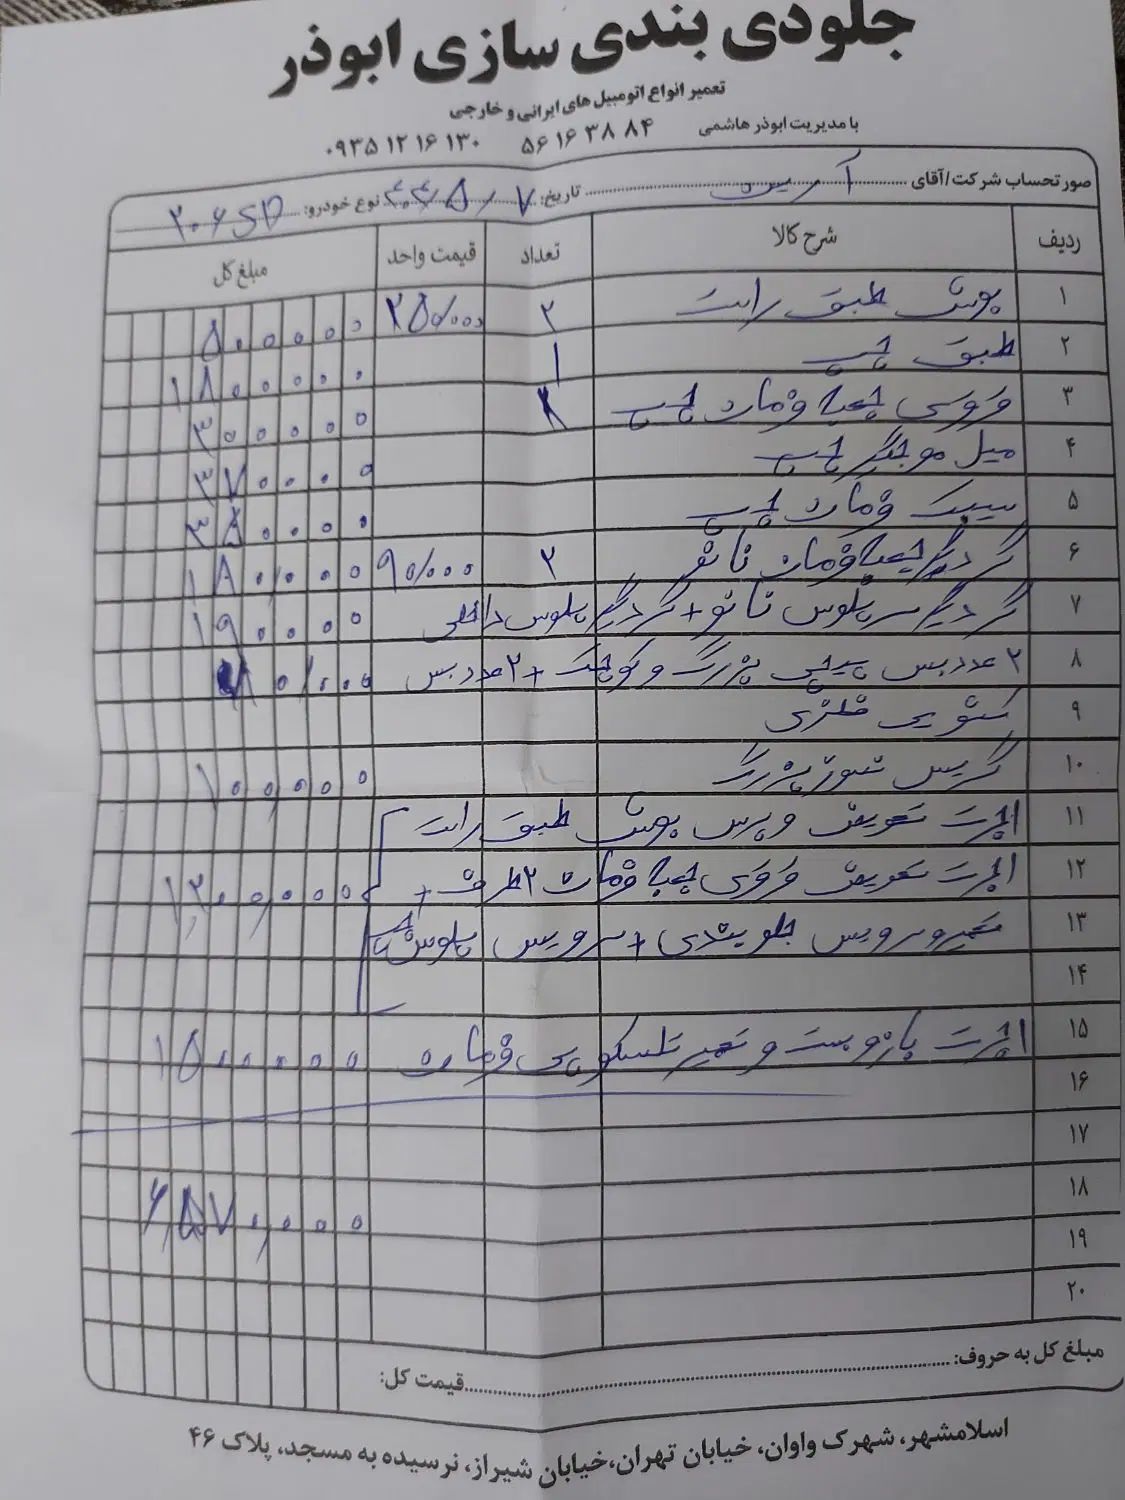 جلودی بندی سازی ابوذر
تعمیر انواع اتومبیل های ایرانی و خارجی
با مدیریت ابوذر هاشمی ۵۶ ۱۶ ۳۸ ۸۴ ۰۹۳۵ ۱۲ ۱۶ ۱۳۰
صورتحساب شرکت/آقای تاریخ: نوع خودرو: ۲۰۶SD
ردیف شرح کالا تعداد قیمت واحد مبلغ کل
۱ بوش طبق راست ۲ ۲۵۰/۰۰۰ ۵۰۰۰۰۰
۲ طبق چپ ۱ ۱۸۰۰۰۰۰
۳ قوسی جعبه فرمان چپ ۳۰۰۰۰۰
۴ میل موجگیر چپ ۳۷۰۰۰۰
۵ سیبک فرمان چپ ۳۵۰۰۰۰
۶ گردگیر جعبه فرمان نانو ۲ ۹۰/۰۰۰ ۱۸۰/۰۰۰
۷ گردگیر سر پلوس نانو + گردگیر پلوس داخلی ۱۹۰۰۰۰
۸ ۲ عدد بس پیچی بزرگ و کوچک + ۲ عدد بس ۰/۰۰۰
۹ کشویی فلزی
۱۰ گریس نسوز بزرگ ۱۰۰۰۰۰
۱۱ اجرت تعویض و پرس بوش طبق راست
۱۲ اجرت تعویض قوسی جعبه فرمان ۲ طرف + ۱٬۳۰۰٬۰۰۰
۱۳ تعمیر و سرویس جلوبندی + سرویس پلوس چپ
۱۴
۱۵ اجرت باز و بست و تعمیر تلسکوپی فرمان ۱۵۰۰۰۰۰
۱۶
۱۷
۱۸ ۶٬۵۷۰٬۰۰۰
۱۹
۲۰
مبلغ کل به حروف: قیمت کل:
اسلامشهر، شهرک واوان، خیابان تهران،خیابان شیراز، نرسیده به مسجد، پلاک ۴۶